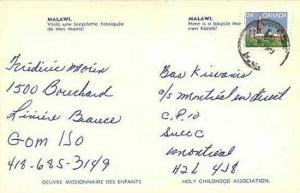 MALAWI.
Voilà une bicyclette fabriquée
de mes mains!
MALAWI.
Here is a bicycle
own hands!
34 CANADA
Frédéric Morin
1500 Bouchard
Linière Beauce
G0M 1J0
418-685-3149
Bas Kiwanis
a/s Montréal en direct
C.P. 10
Succ C
Montréal
H2L 4J8
OEUVRE MISSIONNAIRE DES ENFANTS
HOLY CHILDHOOD ASSOCIATION.